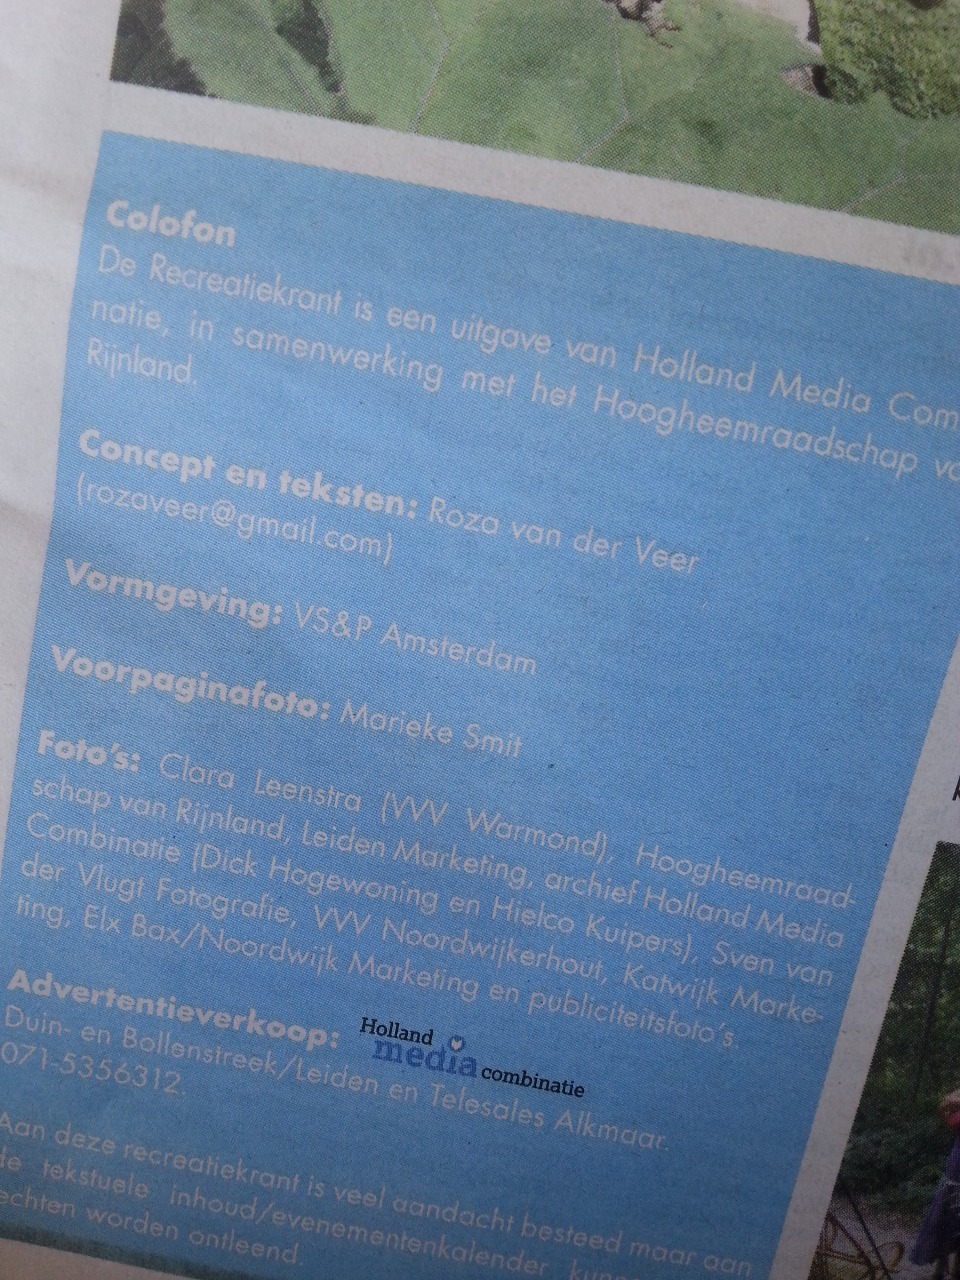 Colofon
De Recreatiekrant is een uitgave van Holland Media Com
natie, in samenwerking met het Hoogheemraadschap va
Rijnland.
Concept en teksten: Roza van der Veer
(rozaveer@gmail.com)
Vormgeving: VS&P Amsterdam
Voorpaginafoto: Marieke Smit
Foto's: Clara Leenstra (VVV Warmond), Hoogheemraad-
schap van Rijnland, Leiden Marketing, archief Holland Media
Combinatie (Dick Hogewoning en Hielco Kuipers), Sven van
der Vlugt Fotografie, VVV Noordwijkerhout, Katwijk Marke-
ting, Elx Bax/Noordwijk Marketing en publiciteitsfoto's.
Advertentieverkoop: Holland
media combinatie
Duin- en Bollenstreek/Leiden en Telesales Alkmaar.
071-5356312.
Aan deze recreatiekrant is veel aandacht besteed maar aan
de tekstuele inhoud/evenementenkalender
echten worden ontleend.